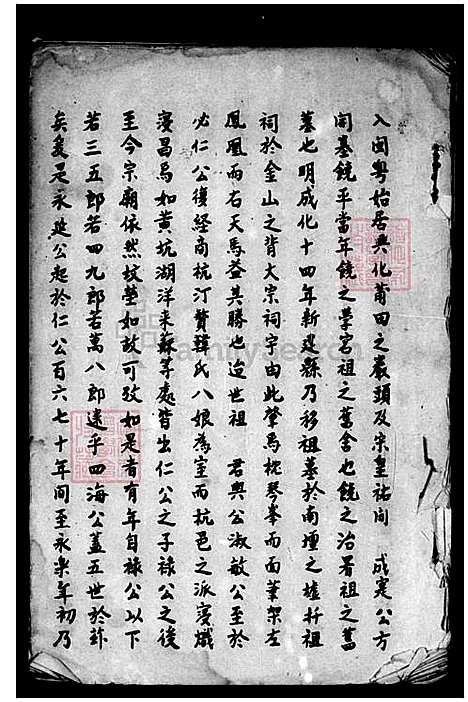 入閩粵始居興化莆田之巖頭及宋皇祐間　成寔公方
開基饒平當年饒之學宮祖之舊舍也饒之治署祖之舊
墓也明成化十四年新建縣乃移祖墓於南壇之墟祔祖
祠於金山之背大宗祠宇由此肇焉枕琴峯而面筆架左
鳳凰而右天馬蓋其勝也迨世祖　君與公淑敏公至於
必仁公復經商杭汀贅韓氏八娘為室而杭邑之派寖熾
寖昌焉如黃坑湖洋來蘇等處皆出仁公之子祿公之後
至今宗廟依然坟塋如故可攷如是者有年自祿公以下
若三五郎若四九郎若萬八郎遠乎四海公蓋五世於茲
矣爰是永延公起於仁公百六七十年間至永樂年初乃
FamilySearch